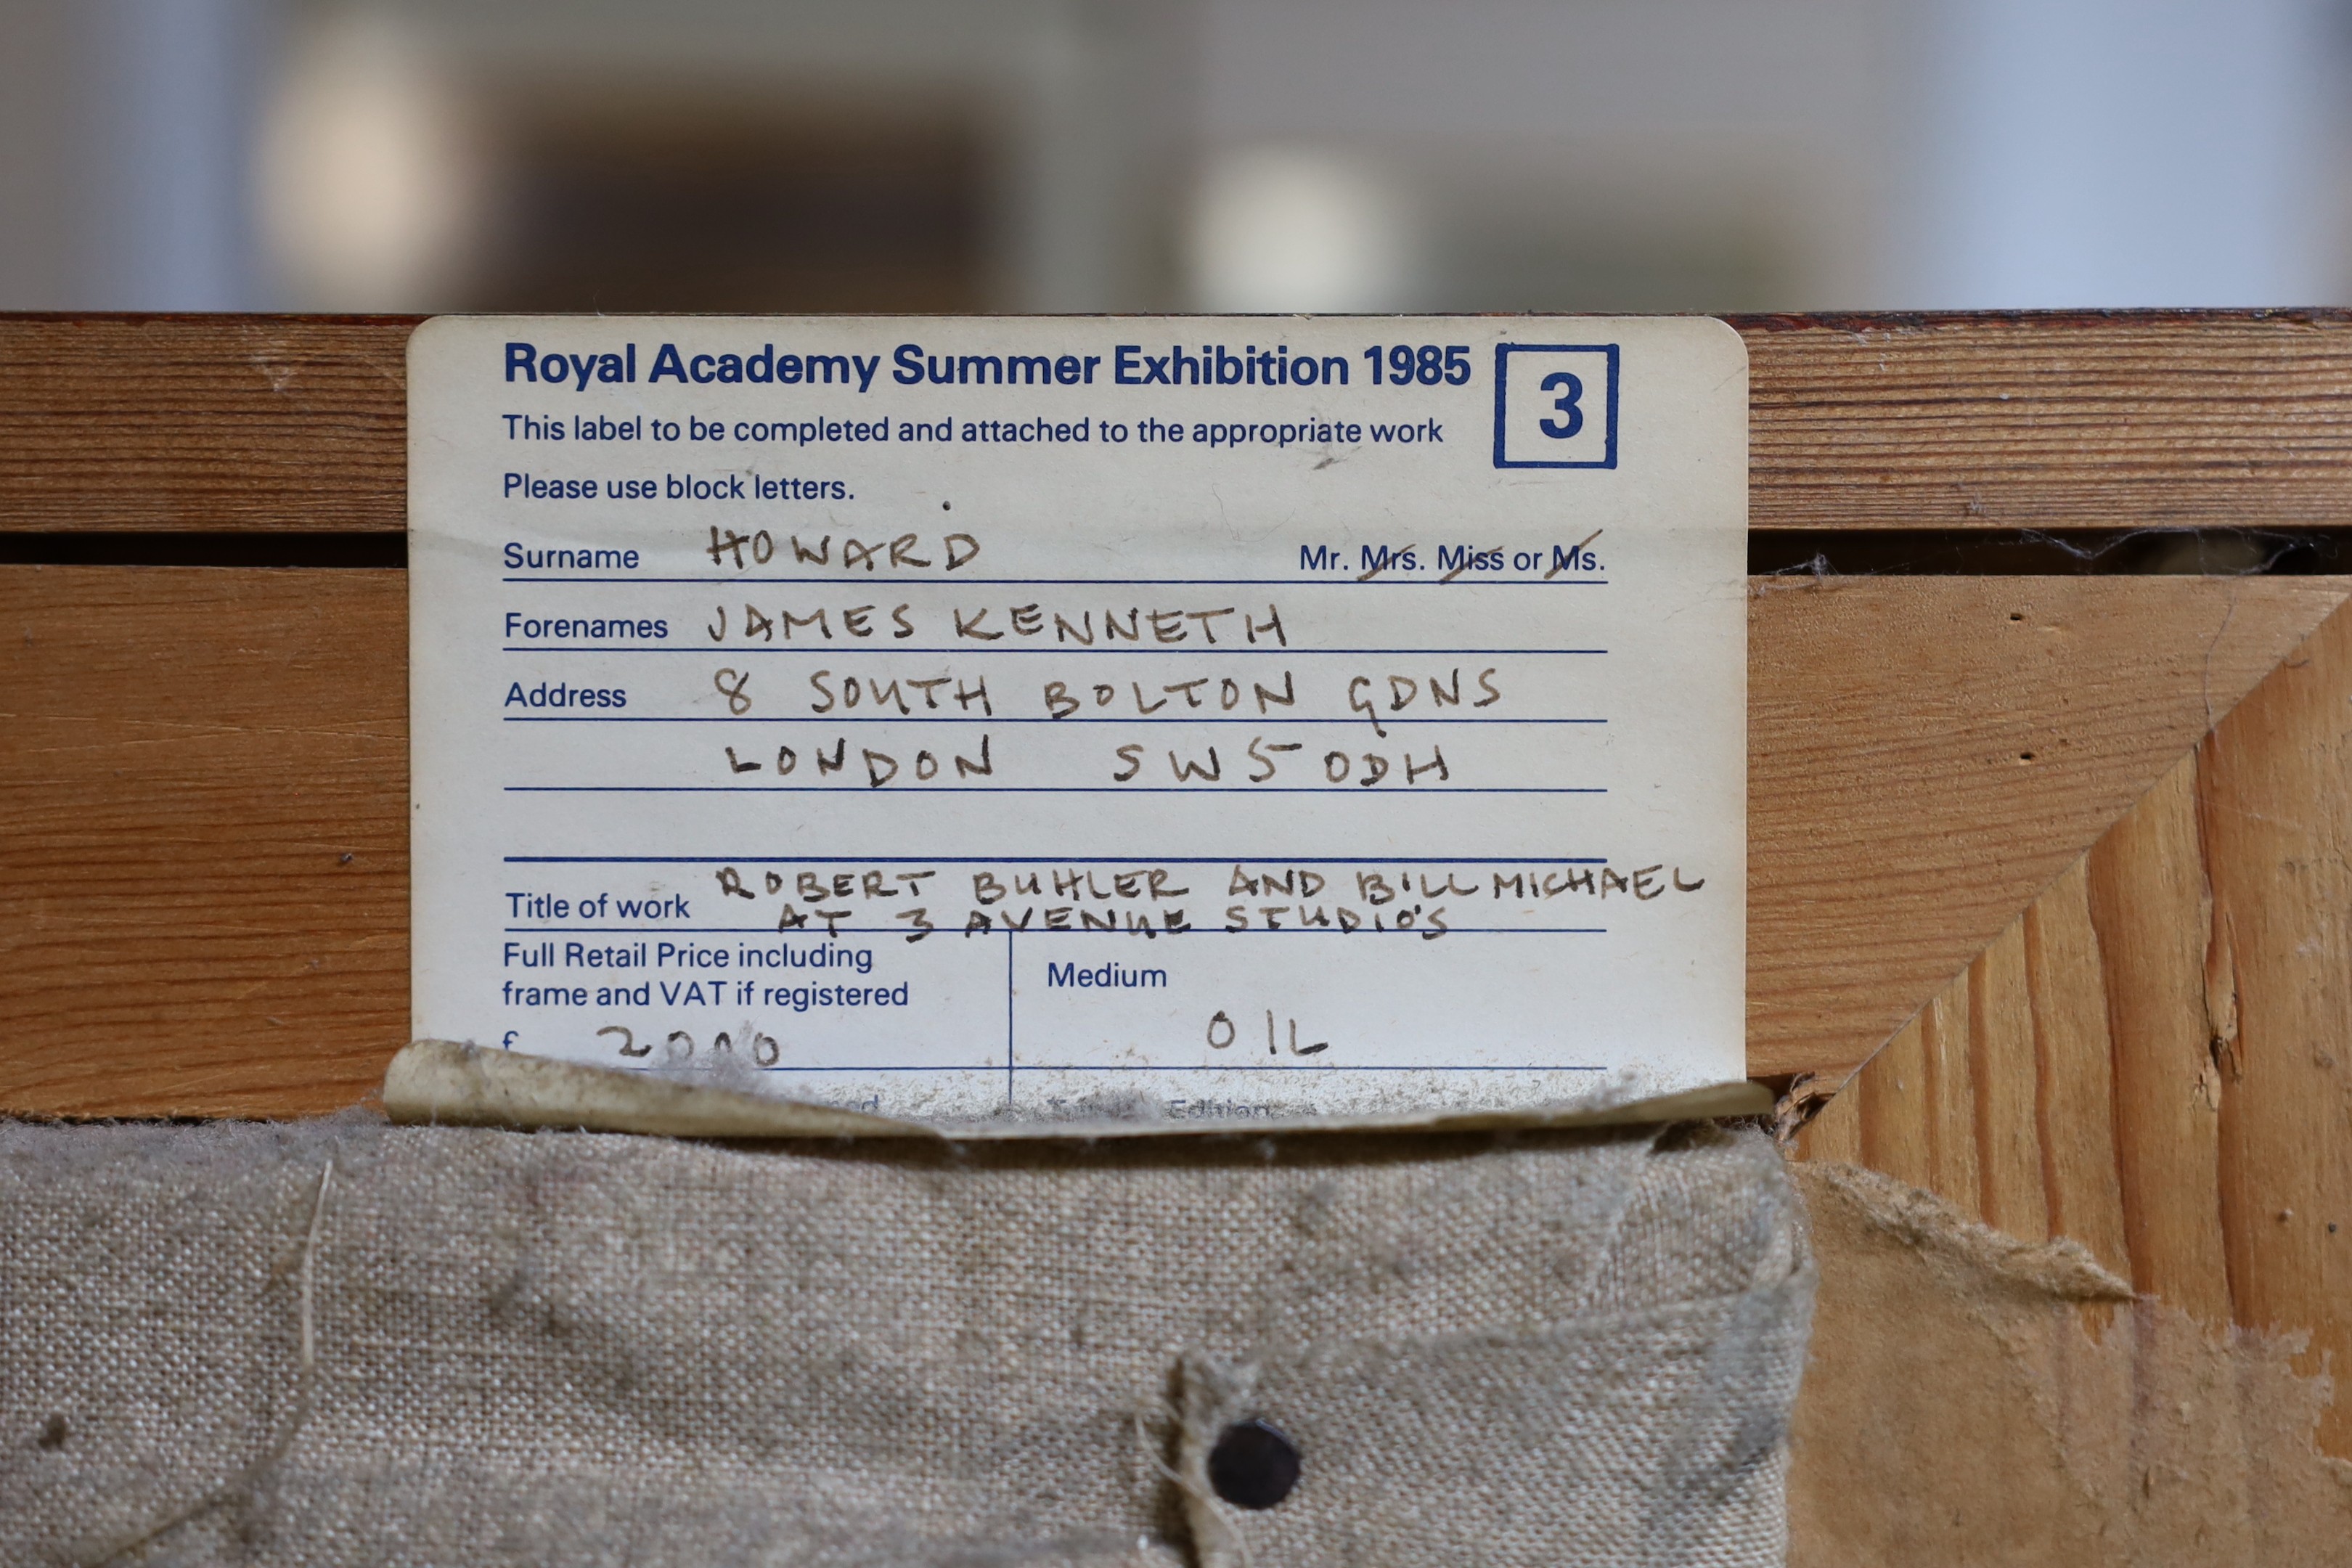 Royal Academy Summer Exhibition 1985 3
This label to be completed and attached to the appropriate work
Please use block letters.
Surname HOWARD Mr. Mrs. Miss or Ms.
Forenames JAMES KENNETH
Address 8 SOUTH BOLTON GDNS
LONDON SW5 0DH
ROBERT BUHLER AND BILL MICHAEL
Title of work AT 3 AVENUE STUDIO'S
Full Retail Price including
frame and VAT if registered
Medium
£ 2000
OIL
Edition